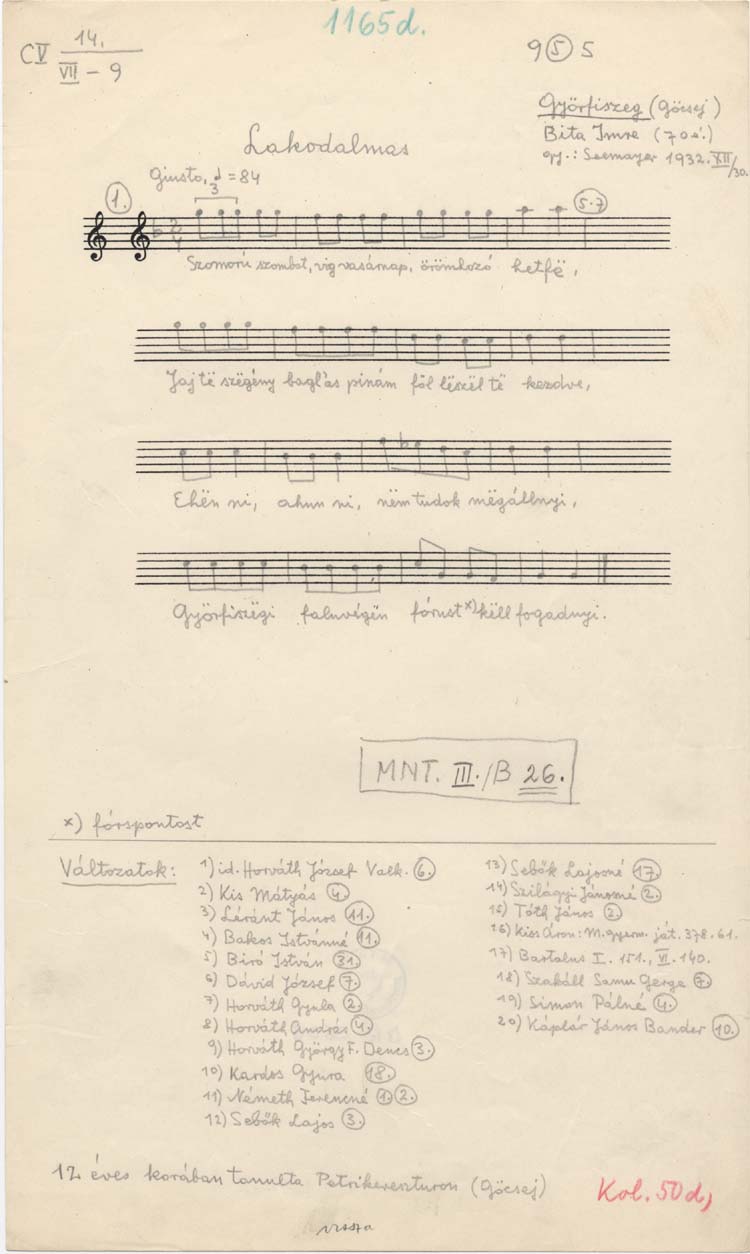 1165d.
CV 14. VII – 9
9 5 5
Györfiszeg (Göcsej)
Bita Imre (70 é.)
gy.: Seemayer 1932. XII/30.
Lakodalmas
Giusto, = 84
1.
5.7
Szomorú szombat, víg vasárnap, örömhozó hetfë,
Jaj të szëgény baglas pinám föl lëszël të kezdve,
Ehën ni, ahun ni, nëm tudok mëgállnyi,
Györfiszëgi faluvégën fórust x) këll fogadnyi.
MNT. III./B 26.
x) fórspontost
Változatok:
1) id. Horváth József Valk. 6.
2) Kis Mátyás 4.
3) Léránt János 11.
4) Bakos Istvánné 11.
5) Biró István 31.
6) Dávid József 7.
7) Horváth Gyula 2.
8) Horváth András 4.
9) Horváth György F. Dencs 3.
10) Kardos Gyura 18.
11) Németh Ferencné 1. 2.
12) Sebők Lajos 3.
13) Sebők Lajosné 17.
14) Szilágyi Jánosné 2.
15) Tóth János 2.
16) Kiss Áron: M. gyerm. ját. 378. 61.
17) Bartalus I. 151., VI. 140.
18) Szakáll Samu Gerge 7.
19) Simon Pálné 4.
20) Káplár János Bander 10.
12 éves korában tanulta Petrikereszturon (Göcsej)
Kol. 50d,
vissza